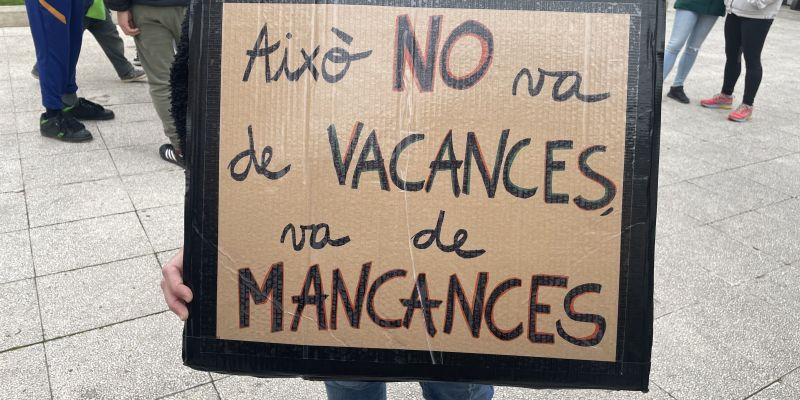 Això NO va
de VACANCES,
va de
MANCANCES